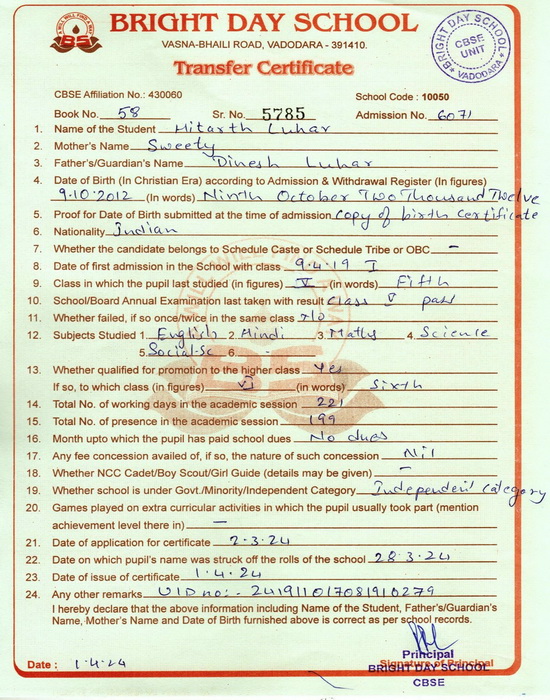 BRIGHT DAY SCHOOL
VASNA-BHAILI ROAD, VADODARA - 391410.
BRIGHT DAY SCHOOL
CBSE
UNIT
VADODARA
Transfer Certificate
CBSE Affiliation No.: 430060 School Code : 10050
Book No. 58 Sr. No. 5785 Admission No. 6071
1. Name of the Student Hitarth Luhar
2. Mother's Name Sweety
3. Father's/Guardian's Name Dinesh Luhar
4. Date of Birth (In Christian Era) according to Admission & Withdrawal Register (In figures)
9.10.2012 (In words) Ninth October Two Thousand Twelve
5. Proof for Date of Birth submitted at the time of admission copy of birth certificate
6. Nationality Indian
7. Whether the candidate belongs to Schedule Caste or Schedule Tribe or OBC -
8. Date of first admission in the School with class 9.4.19 I
9. Class in which the pupil last studied (in figures) V (in words) Fifth
10. School/Board Annual Examination last taken with result Class V pass
11. Whether failed, if so once/twice in the same class No
12. Subjects Studied 1. English 2. Hindi 3 Maths 4. Science
5. Social-Sc 6. -
13. Whether qualified for promotion to the higher class Yes
If so, to which class (in figures) VI (in words) Sixth
14. Total No. of working days in the academic session 221
15. Total No. of presence in the academic session 199
16. Month upto which the pupil has paid school dues No dues
17. Any fee concession availed of, if so, the nature of such concession Nil
18. Whether NCC Cadet/Boy Scout/Girl Guide (details may be given) -
19. Whether school is under Govt./Minority/Independent Category Independent category
20. Games played on extra curricular activities in which the pupil usually took part (mention
achievement level there in) -
21. Date of application for certificate 2.3.24
22. Date on which pupil's name was struck off the rolls of the school 28.3.24
23. Date of issue of certificate 1.4.24
24. Any other remarks UID no:- 241911017081910279
I hereby declare that the above information including Name of the Student, Father's/Guardian's
Name, Mother's Name and Date of Birth furnished above is correct as per school records.
Principal
Date : 1.4.24 Signature of Principal
BRIGHT DAY SCHOOL
CBSE